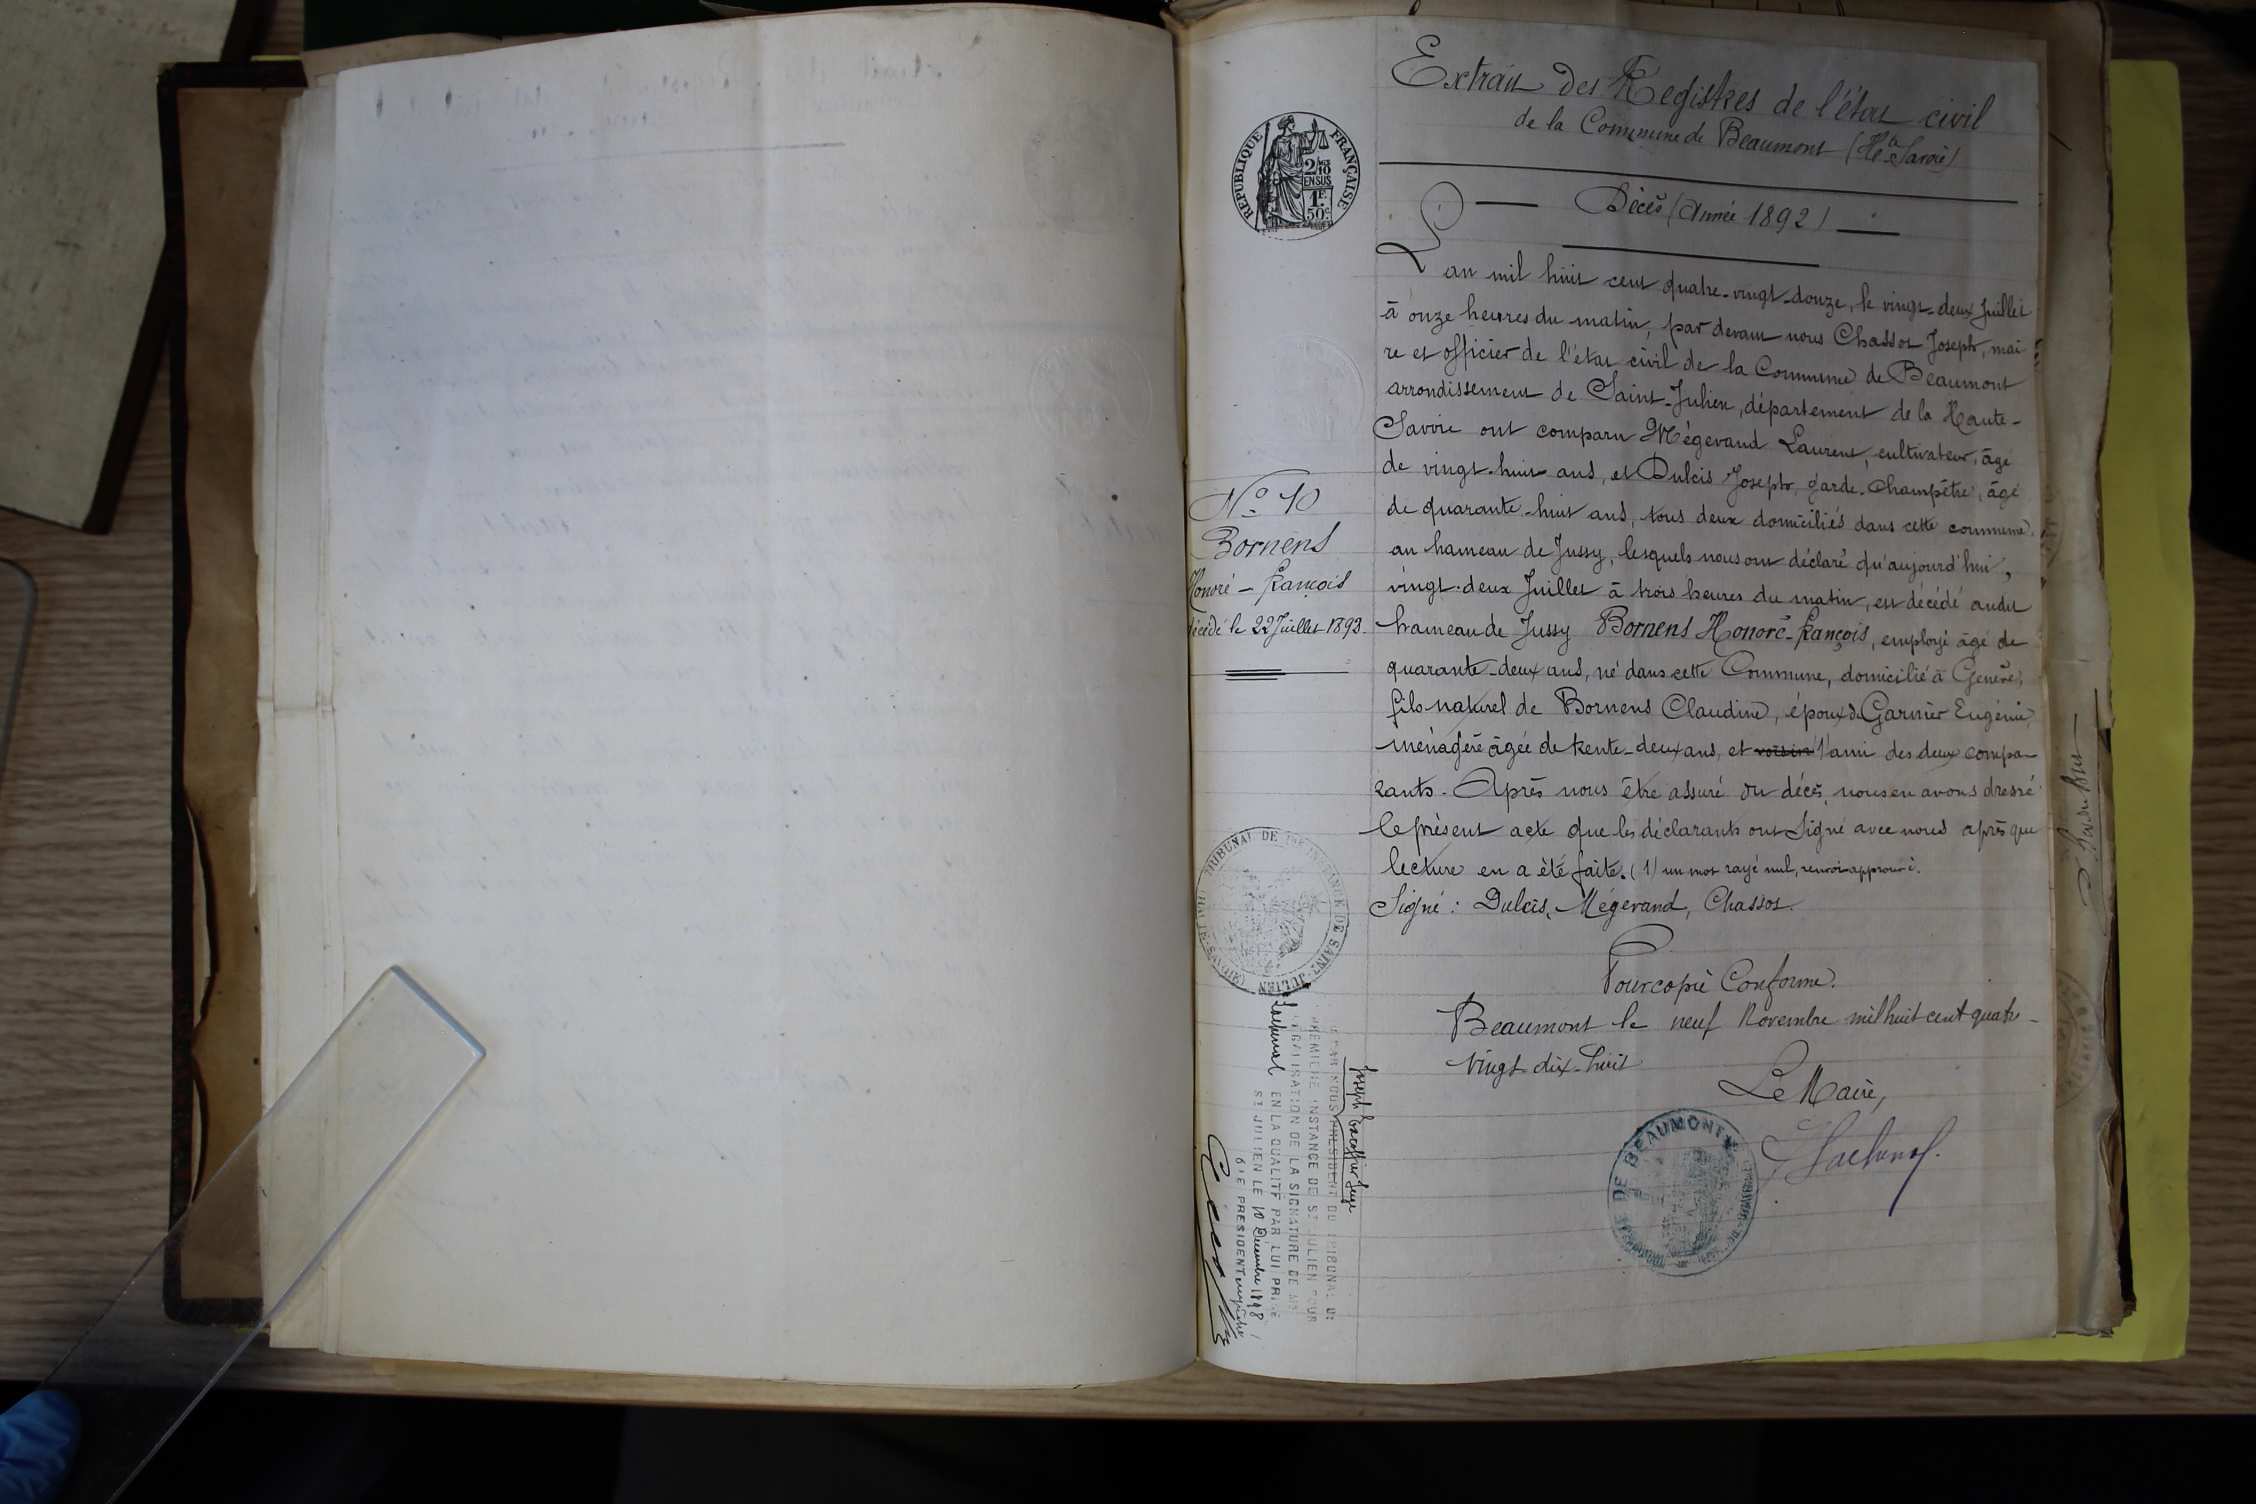 Extrait des Registres de l'état civil
de la Commune de Beaumont (Hte Savoie)
RÉPUBLIQUE FRANÇAISE
2/10
EN SUS
1F.
50c.
Décès (Année 1892)
L'an mil huit cent quatre-vingt-douze, le vingt-deux Juillet
à onze heures du matin, par devant nous Chassot Joseph, mai
re et officier de l'état civil de la Commune de Beaumont
arrondissement de Saint-Julien, département de la Haute-
Savoie ont comparu Mégevand Laurent, cultivateur, âgé
de vingt-huit ans, et Dulcis Joseph, garde-champêtre, âgé
de quarante-huit ans, tous deux domiciliés dans cette commune,
au hameau de Jussy, lesquels nous ont déclaré qu'aujourd'hui,
vingt-deux Juillet à trois heures du matin, est décédé audit
hameau de Jussy Bornens Honoré-françois, employé âgé de
quarante-deux ans, né dans cette Commune, domicilié à Genève,
fils naturel de Bornens Claudine, époux de Garnier Eugénie,
ménagère âgée de trente-deux ans, et voisin l'ami des deux compa-
rants. Après nous être assuré du décès, nous en avons dressé
le présent acte que les déclarants ont signé avec nous après que
lecture en a été faite. (1) un mot rayé nul, renvoi approuvé.
Signé : Dulcis, Mégevand, Chassot.
Pour copie Conforme.
Beaumont le neuf Novembre mil huit cent quatre-
vingt-dix-huit
Le Maire,
Lachenal.
MAIRIE DE BEAUMONT
No 10
Bornens
Honoré-françois
décédé le 22 Juillet 1893.
TRIBUNAL DE 1ERE INSTANCE DE SAINT-JULIEN (HAUTE-SAVOIE)
Joseph juge
PAR NOUS PRESIDENT DU TRIBUNAL DE
PREMIERE INSTANCE DE ST JULIEN POUR
LEGALISATION DE LA SIGNATURE DE MR
Lachenal EN LA QUALITE PAR LUI PRISE
ST JULIEN LE 10 Décembre 1898
PRESIDENT empêché